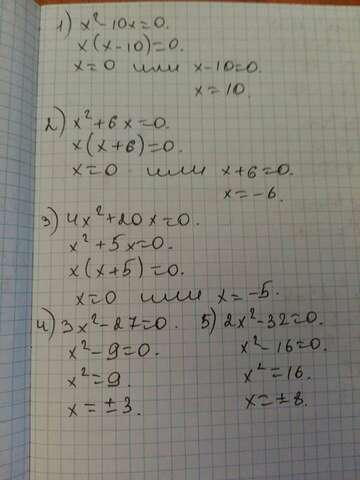 1) x²-10x=0.
x(x-10)=0.
x=0 или x-10=0.
x=10.
2) x²+6x=0.
x(x+6)=0.
x=0 или x+6=0.
x=-6.
3) 4x²+20x=0.
x²+5x=0.
x(x+5)=0.
x=0 или x=-5.
4) 3x²-27=0.
x²-9=0.
x²=9.
x=±3.
5) 2x²-32=0.
x²-16=0.
x²=16.
x=±8.